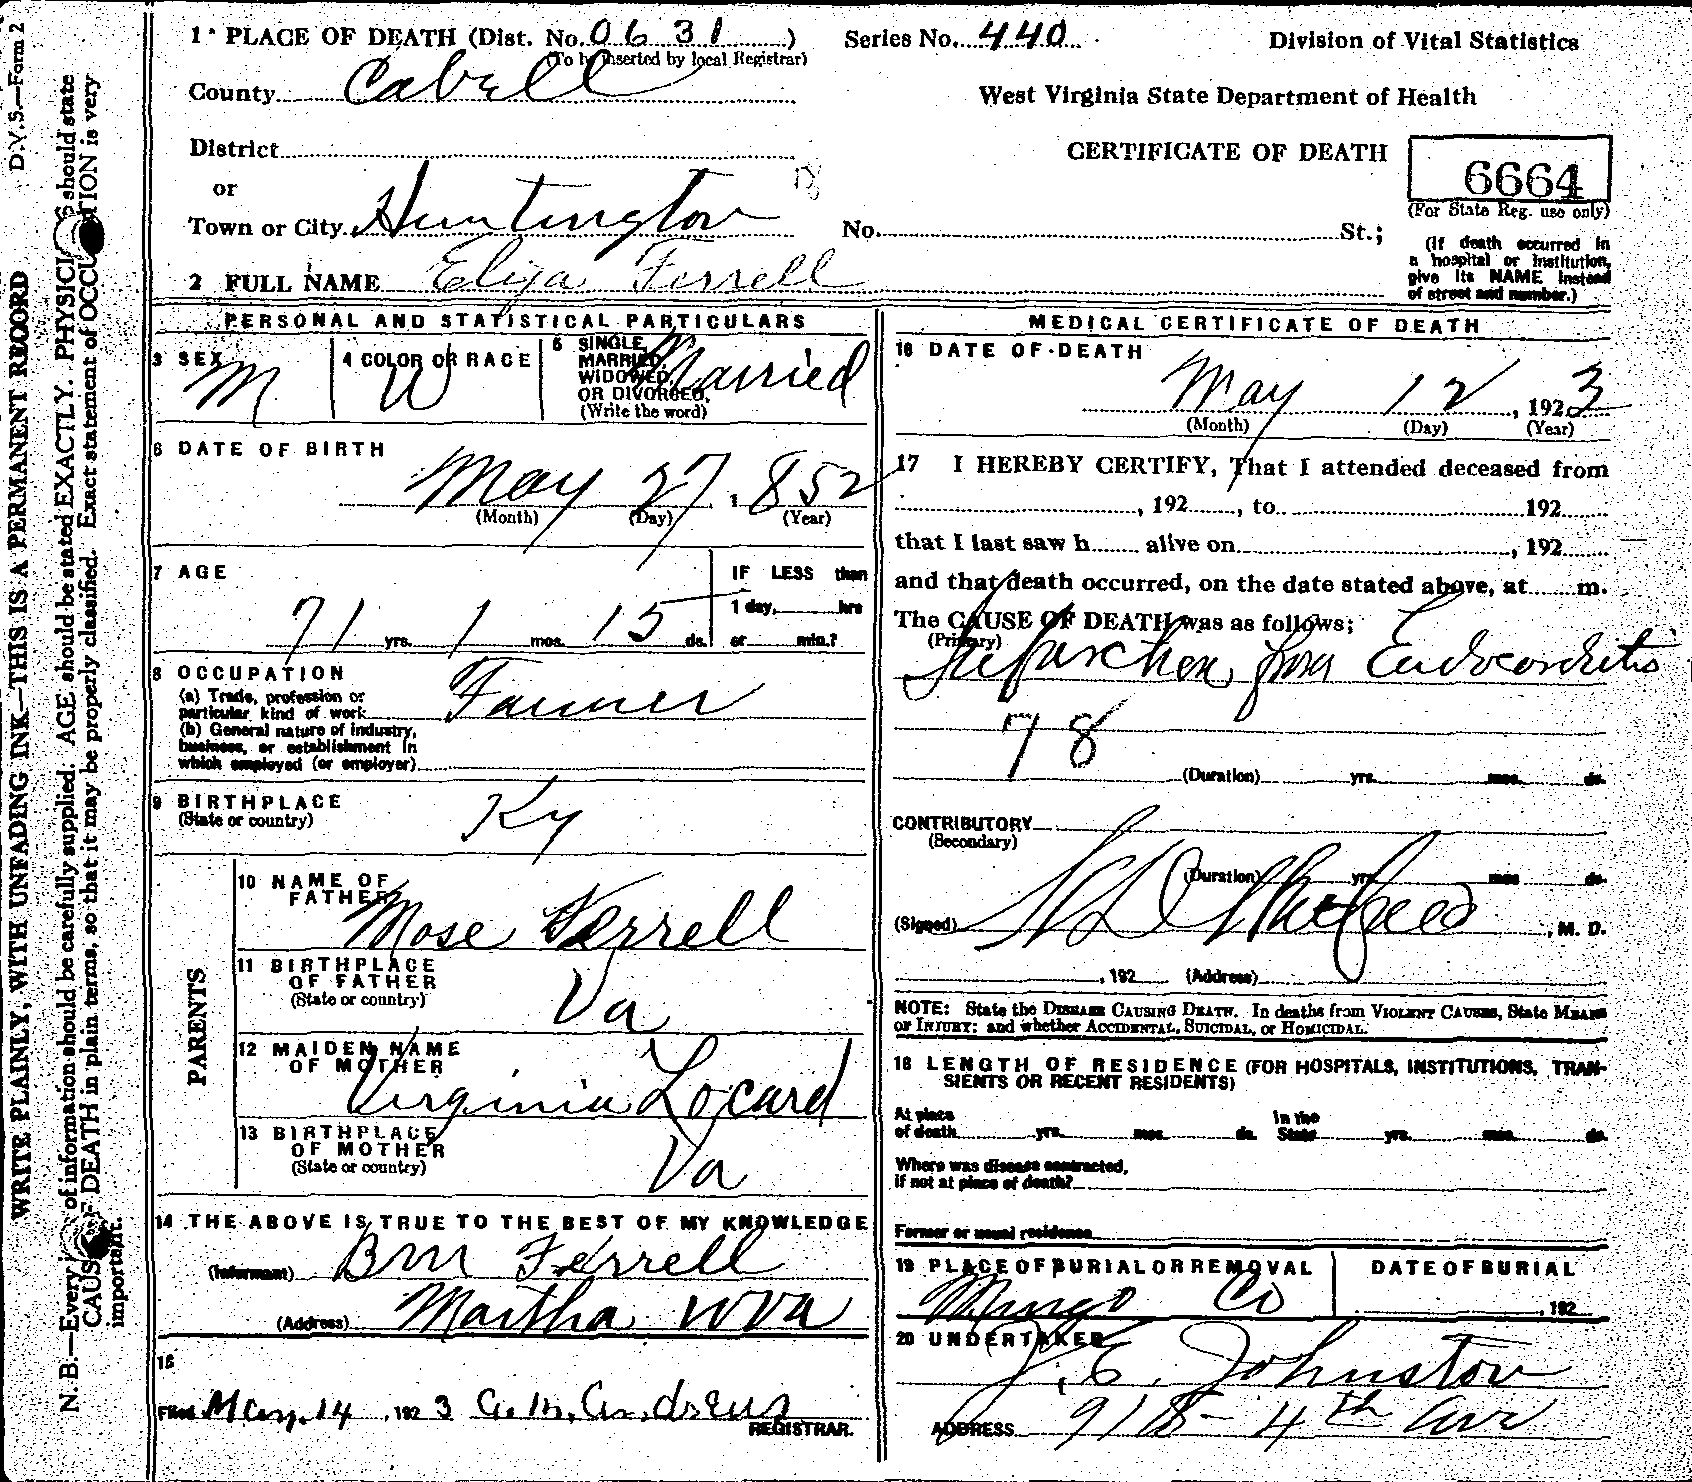 D.V.S.—Form 2
WRITE PLAINLY, WITH UNFADING INK—THIS IS A PERMANENT RECORD
N. B.—Every of information should be carefully supplied. AGE should be stated EXACTLY. PHYSICI S should state
CAUS F DEATH in plain terms, so that it may be properly classified. Exact statement of OCCU TION is very
important.
1 PLACE OF DEATH (Dist. No. 0631 ) Series No. 440 Division of Vital Statistics
(To be inserted by local Registrar)
County Cabell
West Virginia State Department of Health
District
CERTIFICATE OF DEATH 6664
or
(For State Reg. use only)
Town or City Huntington No. St.;
(If death occurred in
a hospital or institution,
give its NAME instead
of street and number.)
2 FULL NAME Eliza Ferrell
PERSONAL AND STATISTICAL PARTICULARS
3 SEX M
4 COLOR OR RACE W
5 SINGLE,
MARRIED,
WIDOWED,
OR DIVORCED,
(Write the word)
Married
6 DATE OF BIRTH
May 27, 1852
(Month) (Day) (Year)
7 AGE
71 yrs. 1 mos. 15 ds.
IF LESS than
1 day, hrs
or min.?
8 OCCUPATION
(a) Trade, profession or
particular kind of work Farmer
(b) General nature of industry,
business, or establishment in
which employed (or employer)
9 BIRTHPLACE
(State or country) Ky
PARENTS
10 NAME OF
FATHER Mose Ferrell
11 BIRTHPLACE
OF FATHER
(State or country) Va
12 MAIDEN NAME
OF MOTHER
Virginia Locard
13 BIRTHPLACE
OF MOTHER
(State or country) Va
14 THE ABOVE IS TRUE TO THE BEST OF MY KNOWLEDGE
(Informant) BM Ferrell
(Address) Martha WVa
15
Filed May. 14, 1923
REGISTRAR.
MEDICAL CERTIFICATE OF DEATH
16 DATE OF DEATH
May 12, 1923
(Month) (Day) (Year)
17 I HEREBY CERTIFY, That I attended deceased from
, 192 , to 192
that I last saw h alive on , 192
and that death occurred, on the date stated above, at m.
The CAUSE OF DEATH was as follows;
(Primary)
from Endocarditis
78
(Duration) yrs. mos. ds.
CONTRIBUTORY
(Secondary)
(Duration) yrs. mos. ds.
(Signed) , M. D.
, 192 (Address)
NOTE: State the DISEASE CAUSING DEATH. In deaths from VIOLENT CAUSES, State MEANS
or INJURY; and whether ACCIDENTAL, SUICIDAL, or HOMICIDAL.
18 LENGTH OF RESIDENCE (FOR HOSPITALS, INSTITUTIONS, TRAN-
SIENTS OR RECENT RESIDENTS)
At place
of death yrs. mos. ds.
In the
State yrs. mos. ds.
Where was disease contracted,
if not at place of death?
Former or usual residence
19 PLACE OF BURIAL OR REMOVAL
Mingo Co
DATE OF BURIAL
, 192
20 UNDERTAKER
J. E. Johnston
ADDRESS 918 - 4th Ave